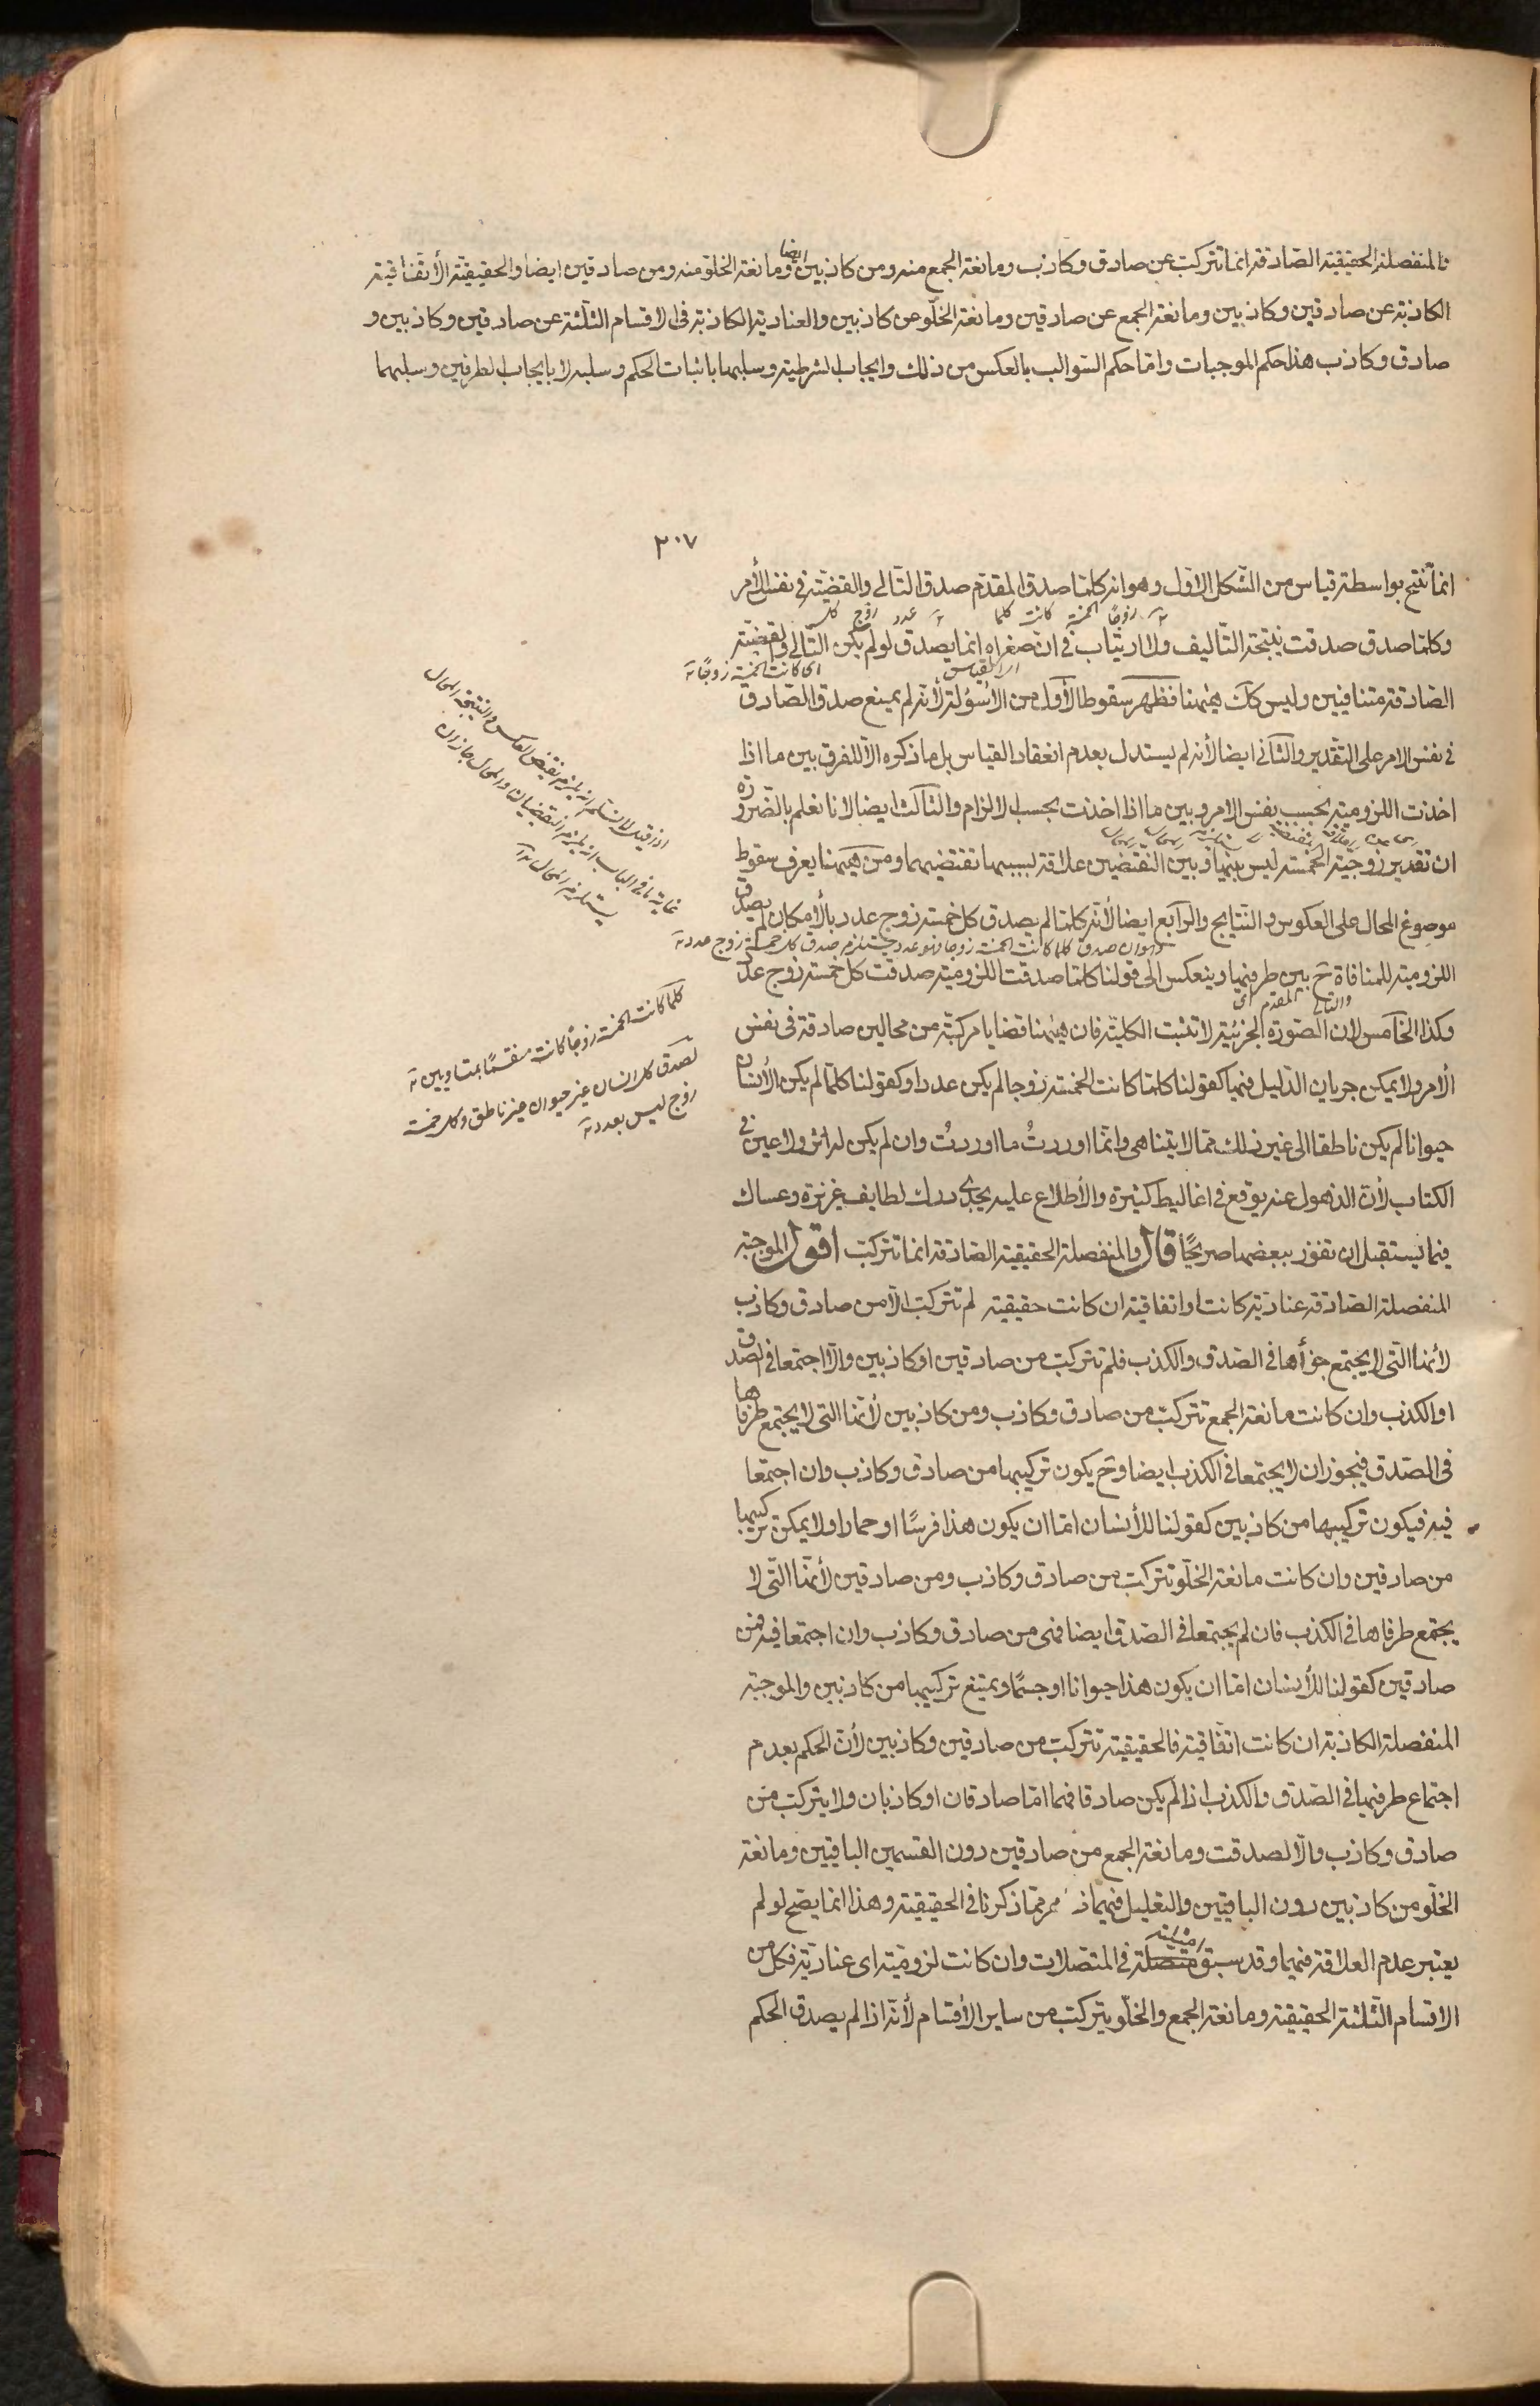 فالمنفصلة الحقيقية الصادقة انما تتركب عن صادق وكاذب ومانعة الجمع منه ومن كاذبين ايضا ومانعة الخلو منه ومن صادقين ايضا والحقيقية الاتفاقية
الكاذبة عن صادقين وكاذبين ومانعة الجمع عن صادقين ومانعة الخلو عن كاذبين والعنادية الكاذبة فى الاقسام الثلثة عن صادقين وكاذبين و
صادق وكاذب هذا حكم الموجبات واما حكم السوالب بالعكس من ذلك وايجاب الشرطية وسلبها باثبات الحكم وسلبه لا بايجاب الطرفين وسلبهما
٢٠٧
انما تنتج بواسطة قياس من الشكل الاول وهو انه كلما صدق المقدم صدق التالى والقضية فى نفس الأمر
وكلما صدق صدقت نتيجة التأليف ولا ارتياب فى ان صغراه انما يصدق لو لم يكن التالى والقضية
الصادقة متنافيين وليس كك ههنا فظهر سقوط الأول من الاسؤلة لأنه لم يمنع صدق الصادق
فى نفس الامر على التقدير والثانى ايضا لأنه لم يستدل بعدم انعقاد القياس بل ما ذكره الا للفرق بين ما اذا
اخذت اللزومية بحسب نفس الامر وبين ما اذا اخذت بحسب الالزام والثالث ايضا لانا نعلم بالضرورة
ان تقدير زوجية الخمسة ليس بينها وبين النقيضين علاقة بسببها تقتضيهما ومن ههنا يعرف سقوط
موصوغ المحال على العكوس والنتايج والرابع ايضا لأنه كلما لم يصدق كل خمسة زوج عدد بالأمكان لم يصدق
اللزومية للمنافاة ح بين طرفيها وينعكس الى قولنا كلما صدقت اللزومية صدقت كل خمسة زوج عدد
وكذا الخامس لان الصورة الجزئية لا تثبت الكلية فان ههنا قضايا مركبة من محالين صادقة فى نفس
الأمر ولا يمكن جريان الدليل فيها كقولنا كلما كانت الخمسة زوجا لم يكن عددا وكقولنا كلما لم يكن الأنسان
حيوانا لم يكن ناطقا الى غير ذلك مما لا يتناهى وانما اوردتُ ما اوردتُ وان لم يكن له اثر ولا عين فى
الكتاب لأن الذهول عنه يوقع فى اغاليط كثيرة والأطلاع عليه يجدى درك لطايف غزيرة وعساك
فيما يستقبل ان تفوز ببعضها صريحًا قال والمنفصلة الحقيقية الصادقة انما تتركب اقول الموجبة
المنفصلة الصادقة عنادية كانت او اتفاقية ان كانت حقيقية لم تتركب الا من صادق وكاذب
لأنها التى لا يجتمع جزأها فى الصدق والكذب فلم تتركب من صادقين او كاذبين والا اجتمعا فى الصدق
او الكذب وان كانت مانعة الجمع تتركب من صادق وكاذب ومن كاذبين لأنها التى لا يجتمع طرفاها
فى الصدق فيجوز ان لا يجتمعا فى الكذب ايضا وح يكون تركيبها من صادق وكاذب وان اجتمعا
فيه فيكون تركيبها من كاذبين كقولنا للأنسان اما ان يكون هذا فرسًا او حمارا ولا يمكن تركيبها
من صادقين وان كانت مانعة الخلو تتركب من صادق وكاذب ومن صادقين لأنها التى لا
يجتمع طرفاها فى الكذب فان لم يجتمعا فى الصدق ايضا فهى من صادق وكاذب وان اجتمعا فيه فمن
صادقين كقولنا للأنسان اما ان يكون هذا حيوانا او جسمًا ويمتنع تركيبها من كاذبين والموجبة
المنفصلة الكاذبة ان كانت اتفاقية فالحقيقية تتركب من صادقين وكاذبين لأن الحكم بعدم
اجتماع طرفيها فى الصدق والكذب اذا لم يكن صادقا فهما اما صادقان او كاذبان ولا يتركب من
صادق وكاذب والا لصدقت ومانعة الجمع من صادقين دون القسمين الباقيين ومانعة
الخلو من كاذبين دون الباقيين والتعليل فيهما مما ذكرنا فى الحقيقية وهذا انما يصح لو لم
يعتبر عدم العلاقة فيها وقد سبق مثله فى المتصلات وان كانت لزومية اى عنادية فكل من
الاقسام الثلثة الحقيقية ومانعة الجمع والخلو يتركب من ساير الأقسام لأنه اذا لم يصدق الحكم
كلما كانت الخمسة زوجًا كانت منقسمًا بمتساويين
لصدق كل انسان غير حيوان غير ناطق وكل خمسة
زوج ليس بعدد